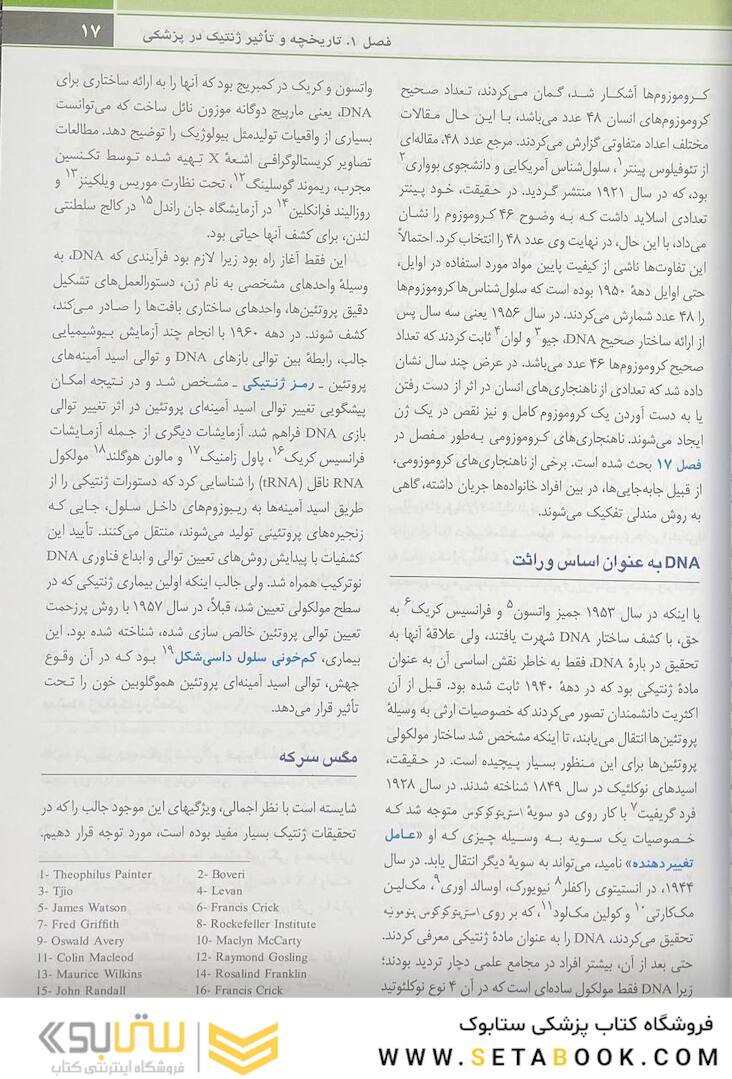 فصل ۱. تاریخچه و تأثیر ژنتیک در پزشکی
۱۷
کروموزوم‌ها آشکار شد، گمان می‌کردند، تعداد صحیح
کروموزوم‌های انسان ۴۸ عدد می‌باشد، با این حال مقالات
مختلف اعداد متفاوتی گزارش می‌کردند. مرجع عدد ۴۸، مقاله‌ای
از تئوفیلوس پینتر۱، سلول‌شناس آمریکایی و دانشجوی بوواری۲
بود، که در سال ۱۹۲۱ منتشر گردید. در حقیقت، خود پینتر
تعدادی اسلاید داشت که به وضوح ۴۶ کروموزوم را نشان
می‌داد، با این حال، در نهایت وی عدد ۴۸ را انتخاب کرد. احتمالاً
این تفاوت‌ها ناشی از کیفیت پایین مواد مورد استفاده در اوایل،
حتی اوایل دههٔ ۱۹۵۰ بوده است که سلول‌شناس‌ها کروموزوم‌ها
را ۴۸ عدد شمارش می‌کردند. در سال ۱۹۵۶ یعنی سه سال پس
از ارائه ساختار صحیح DNA، جیو۳ و لوان۴ ثابت کردند که تعداد
صحیح کروموزوم‌ها ۴۶ عدد می‌باشد. در عرض چند سال نشان
داده شد که تعدادی از ناهنجاری‌های انسان در اثر از دست رفتن
یا به دست آوردن یک کروموزوم کامل و نیز نقص در یک ژن
ایجاد می‌شوند. ناهنجاری‌های کروموزومی به‌طور مفصل در
فصل ۱۷ بحث شده است. برخی از ناهنجاری‌های کروموزومی،
از قبیل جابه‌جایی‌ها، در بین افراد خانواده‌ها جریان داشته، گاهی
به روش مندلی تفکیک می‌شوند.
DNA به عنوان اساس وراثت
با اینکه در سال ۱۹۵۳ جمیز واتسون۵ و فرانسیس کریک۶ به
حق، با کشف ساختار DNA شهرت یافتند، ولی علاقهٔ آنها به
تحقیق در بارهٔ DNA، فقط به خاطر نقش اساسی آن به عنوان
مادهٔ ژنتیکی بود که در دههٔ ۱۹۴۰ ثابت شده بود. قبل از آن
اکثریت دانشمندان تصور می‌کردند که خصوصیات ارثی به وسیلهٔ
پروتئین‌ها انتقال می‌یابند، تا اینکه مشخص شد ساختار مولکولی
پروتئین‌ها برای این منظور بسیار پیچیده است. در حقیقت،
اسیدهای نوکلئیک در سال ۱۸۴۹ شناخته شدند. در سال ۱۹۲۸
فرد گریفیت۷ با کار روی دو سویهٔ استرپتوکوکوس متوجه شد که
خصوصیات یک سویه به وسیله چیزی که او «عامل
تغییردهنده» نامید، می‌تواند به سویهٔ دیگر انتقال یابد. در سال
۱۹۴۴، در انستیتوی راکفلر۸ نیویورک، اوسالد اوری۹، مک‌لین
مک‌کارتی۱۰ و کولین مک‌لود۱۱، که بر روی استرپتوکوکوس پنومونیه
تحقیق می‌کردند، DNA را به عنوان مادهٔ ژنتیکی معرفی کردند.
حتی بعد از آن، بیشتر افراد در مجامع علمی دچار تردید بودند؛
زیرا DNA فقط مولکول ساده‌ای است که در آن ۴ نوع نوکلئوتید
واتسون و کریک در کمبریج بود که آنها را به ارائه ساختاری برای
DNA، یعنی مارپیچ دوگانه موزون نائل ساخت که می‌توانست
بسیاری از واقعیات تولیدمثل بیولوژیک را توضیح دهد. مطالعات
تصاویر کریستالوگرافی اشعهٔ X تهیه شده توسط تکنسین
مجرب، ریموند گوسلینگ۱۲، تحت نظارت موریس ویلکینز۱۳ و
روزالیند فرانکلین۱۴ در آزمایشگاه جان راندل۱۵ در کالج سلطنتی
لندن، برای کشف آنها حیاتی بود.
این فقط آغاز راه بود زیرا لازم بود فرآیندی که DNA، به
وسیلهٔ واحدهای مشخصی به نام ژن، دستورالعمل‌های تشکیل
دقیق پروتئین‌ها، واحدهای ساختاری بافت‌ها را صادر می‌کند،
کشف شوند. در دهه ۱۹۶۰ با انجام چند آزمایش بیوشیمیایی
جالب، رابطهٔ بین توالی بازهای DNA و توالی اسید آمینه‌های
پروتئین ـ رمز ژنتیکی ـ مشخص شد و در نتیجه امکان
پیشگویی تغییر توالی اسید آمینه‌ای پروتئین در اثر تغییر توالی
بازی DNA فراهم شد. آزمایشات دیگری از جمله آزمایشات
فرانسیس کریک۱۶، پاول زامنیک۱۷ و مالون هوگلند۱۸ مولکول
RNA ناقل (tRNA) را شناسایی کرد که دستورات ژنتیکی را از
طریق اسید آمینه‌ها به ریبوزوم‌های داخل سلول، جایی که
زنجیره‌های پروتئینی تولید می‌شوند، منتقل می‌کنند. تأیید این
کشفیات با پیدایش روش‌های تعیین توالی و ابداع فناوری DNA
نوترکیب همراه شد. ولی جالب اینکه اولین بیماری ژنتیکی که در
سطح مولکولی تعیین شد، قبلاً، در سال ۱۹۵۷ با روش پرزحمت
تعیین توالی پروتئین خالص سازی شده، شناخته شده بود. این
بیماری، کم‌خونی سلول داسی‌شکل۱۹ بود که در آن وقوع
جهش، توالی اسید آمینه‌ای پروتئین هموگلوبین خون را تحت
تأثیر قرار می‌دهد.
مگس سرکه
شایسته است با نظر اجمالی، ویژگیهای این موجود جالب را که در
تحقیقات ژنتیک بسیار مفید بوده است، مورد توجه قرار دهیم.
1- Theophilus Painter 2- Boveri
3- Tjio 4- Levan
5- James Watson 6- Francis Crick
7- Fred Griffith 8- Rockefeller Institute
9- Oswald Avery 10- Maclyn McCarty
11- Colin Macleod 12- Raymond Gosling
13- Maurice Wilkins 14- Rosalind Franklin
15- John Randall 16- Francis Crick
فروشگاه کتاب پزشکی ستابوک
WWW.SETABOOK.COM
ستابوک
فروشگاه اینترنتی کتاب